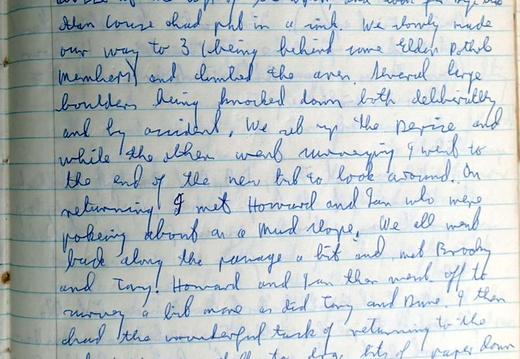 Alan Couse had put in a sink. We slowly made
our way to 3 (being behind some Eldon Pothole
members) and climbed the aven. Several large
boulders being knocked down both deliberately
and by accident. We set up the and
while the others went surveying I went to
the end of the new bit to look around. On
returning I met Howard and Ian who were
pokeing about on a mud slope. We all went
back along the passage a bit and met Brody
and Tony. Howard and Ian then went off to
survey a bit more as did Tony and . I then
had the wonderful task of returning to the
bits of paper down